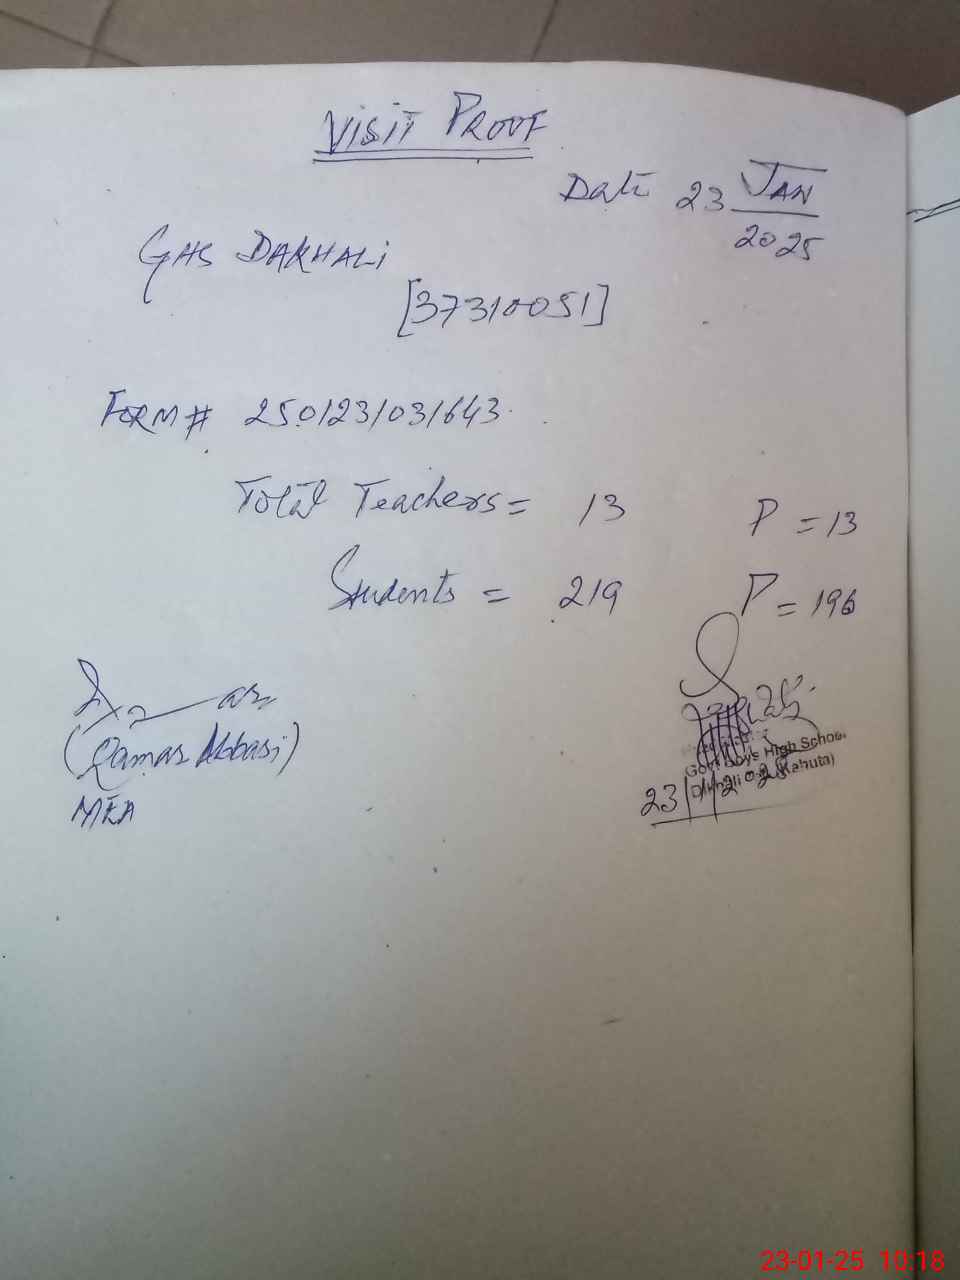 VISIT PROOF
Date 23 JAN
2025
GHS DAKHALI
[37310051]
FORM# 250123/031643
Total Teachers = 13 P = 13
Students = 219 P = 196
(Qamar Abbasi)
MEA
Govt Boys High School
(Kahuta)
23/1/2025
23-01-25 10:18